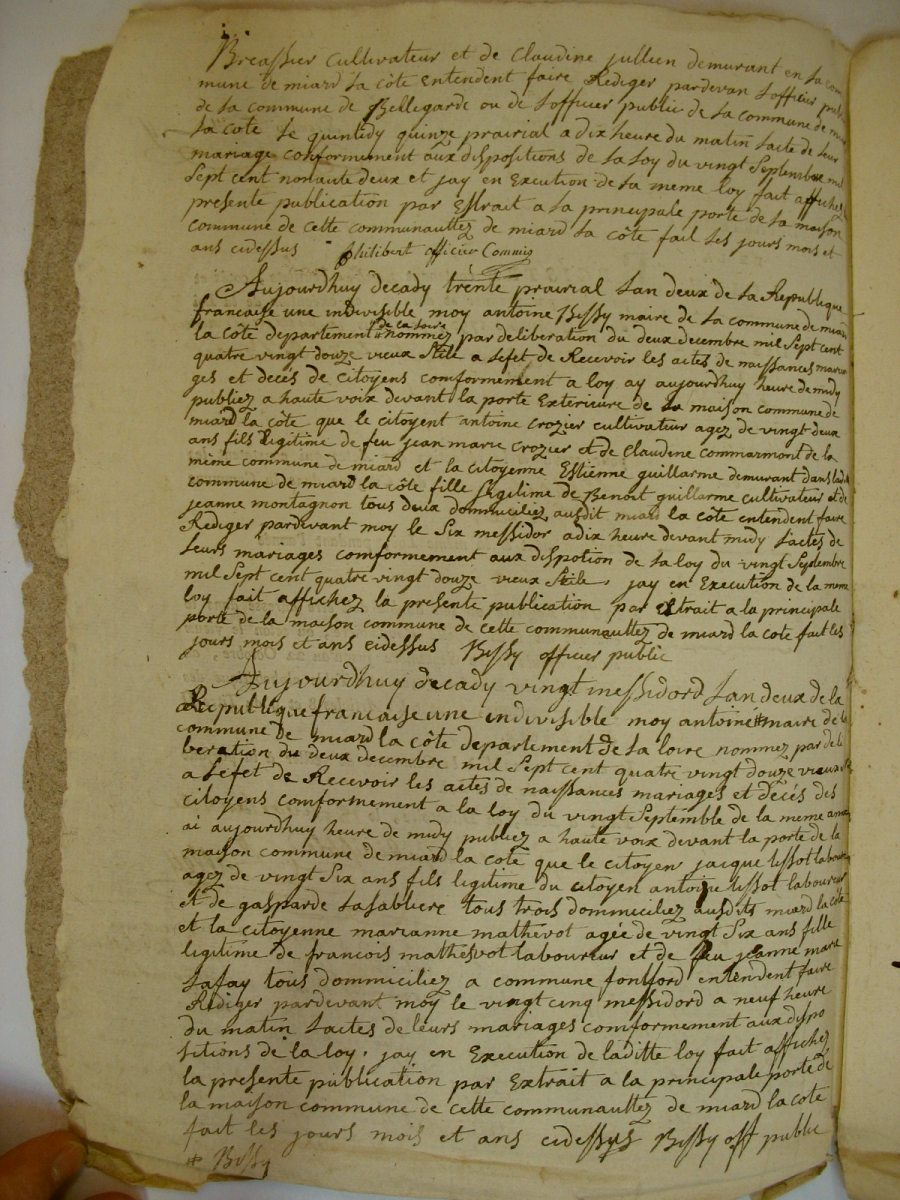 Breassier cultivateur et de Claudine jullien demurant en sa com
mune de miard la côte entendent faire Rediger pardevan Lofficier publi
de sa commune de Bellegarde ou de Lofficier public de sa commune de mia
la cote le quintidy quinze prairial a dix heure du matin Lacte de leur
mariage conformement aux dispositions de la loy du vingt septembre mil
sept cent nonante deux et jay en Execution de sa meme loy fait affichez
presente publication par Estrait a la principale porte de sa maison
commune de cette communauttez de miard la côte fait les jours mois et
ans cidessus Philibert officier Commis
Aujourdhuy decady trente prairial Lan deux de la Republique
francaise une indivisible moy antoine Bissy maire de sa commune de miard
la côte departement de la loire nommez par deliberation du deux decembre mil sept cent
quatre vingt douze vieux stile a lefet de Recevoir les actes de naissances maria
ges et decés de citoyens comformement a loy ay aujourdhuy heure de midy
publiez a haute voix devant la porte Exterieure de la maison commune de
miard la côte que le citoyent antoine crozier cultivateur agez de vingt deux
ans fils legitime de feu jean marie crozier et de Claudine commarmont de la
même commune de miard et la citoyenne Estienne guillarme demurant dans ladite
commune de miard la côte fille legitime de Benoit guillarme cultivateur et de
jeanne montagnon tous deux dommiciliez ausdit miard la côte entendent faire
Rediger pardevant moy le six messidor a dix heure devant midy Lactes de
leurs mariages comformement aux dispotion de la loy du vingt septembre
mil sept cent quatre vingt douze vieux stile, jay en Execution de la meme
loy fait affichez la presente publication par Extrait a la principale
porte de la maison commune de cette communauttez de miard la cote fait les
jours mois et ans cidessus Bissy officier public
Aujourdhuy decady vingt messidord Lan deux de la
Republique francaise une indivisible moy antoine # maire de la
commune de miard la côte departement de la loire nommez par deli
beration du deux decembre mil sept cent quatre vingt douze vieux stile
a lefet de Recevoir les actes de naissances mariages et decés des
citoyens comformement a la loy du vingt septemble de la meme annee
ai aujourdhuy heure de midy publiez a haute voix devant la porte de la
maison commune de miard la cote que le citoyen jacque lissot laboureur
agez de vingt six ans fils legitime du citoyen antoine lissot laboureur
et de gasparde lasabliere tous trois dommiciliez ausdits miard la côte
et la citoyenne marianne mathevot agée de vingt six ans fille
legitime de francois mathesvot laboureur et de feu jeanne marie
lafay tous dommiciliez a commune fontford entendent faire
Rediger pardevant moy le vingt cinq messidord a neuf heure
du matin Lactes de leurs mariages comformement aux dispo
sitions de la loy, jay en Execution de laditte loy fait affichez
la presente publication par Extrait a la principale porte de
la maison commune de cette communauttez de miard la cote
fait les jours mois et ans cidessus Bissy off public
# Bissy